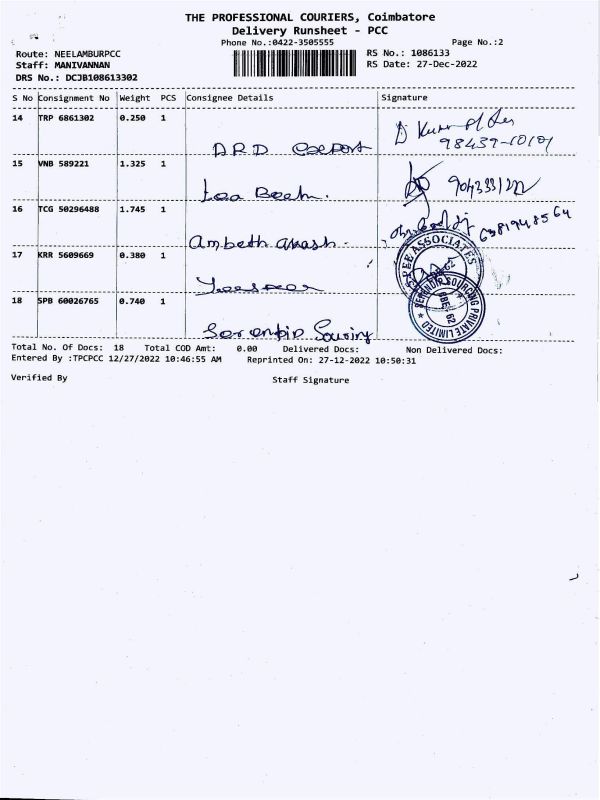 THE PROFESSIONAL COURIERS, Coimbatore
Delivery Runsheet - PCC
Phone No.:0422-3505555 Page No.:2
Route: NEELAMBURPCC RS No.: 1086133
Staff: MANIVANNAN RS Date: 27-Dec-2022
DRS No.: DCJB108613302
S No Consignment No Weight PCS Consignee Details Signature
14 TRP 6861302 0.250 1
98439-10101
DRD
15 VNB 589221 1.325 1
16 TCG 50296488 1.745 1
6381948564
Ambeth Akash
17 KRR 5609669 0.380 1
PEE ASSOCIATES
18 SPB 60026765 0.740 1
SERENDIP SOURCING PRIVATE LIMITED
CBE 62
Serendip Souring
Total No. Of Docs: 18 Total COD Amt: 0.00 Delivered Docs: Non Delivered Docs:
Entered By :TPCPCC 12/27/2022 10:46:55 AM Reprinted On: 27-12-2022 10:50:31
Verified By Staff Signature